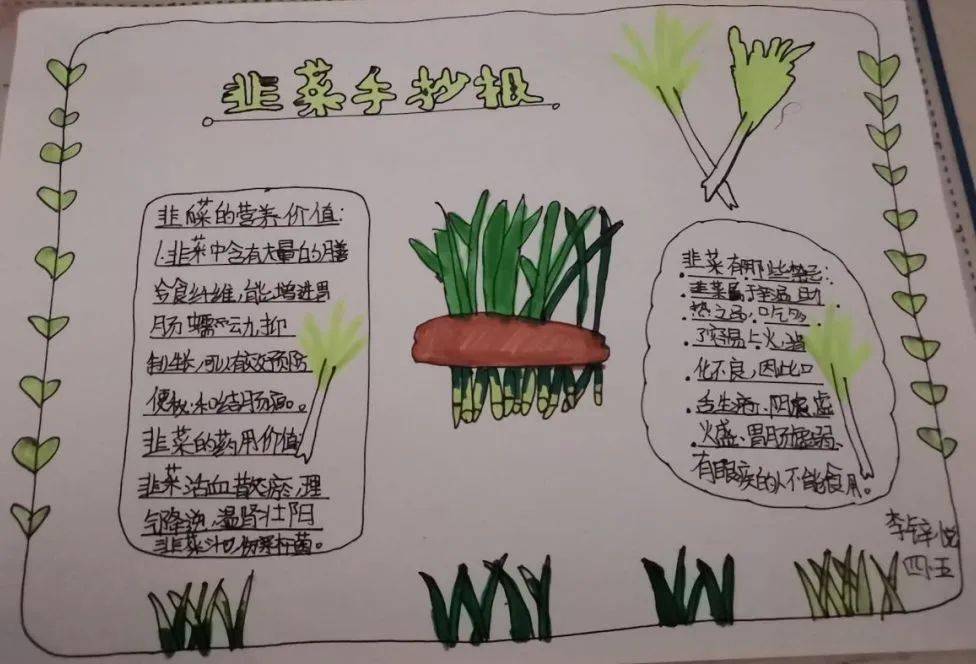 韭菜手抄报
韭菜的营养价值:
1.韭菜中含有大量的膳
食纤维,能增进胃
肠蠕动,抑
制生长,可以有效预防
便秘和结肠癌。
韭菜的药用价值
韭菜活血散瘀,理
气降逆,温肾壮阳
韭菜汁
韭菜有哪些禁忌:
韭菜属于辛温助
热之品,吃多
了容易上火,消
化不良,因此口
舌生疮、阴虚
火盛、胃肠虚弱、
有眼疾的人不能食用。
四.五